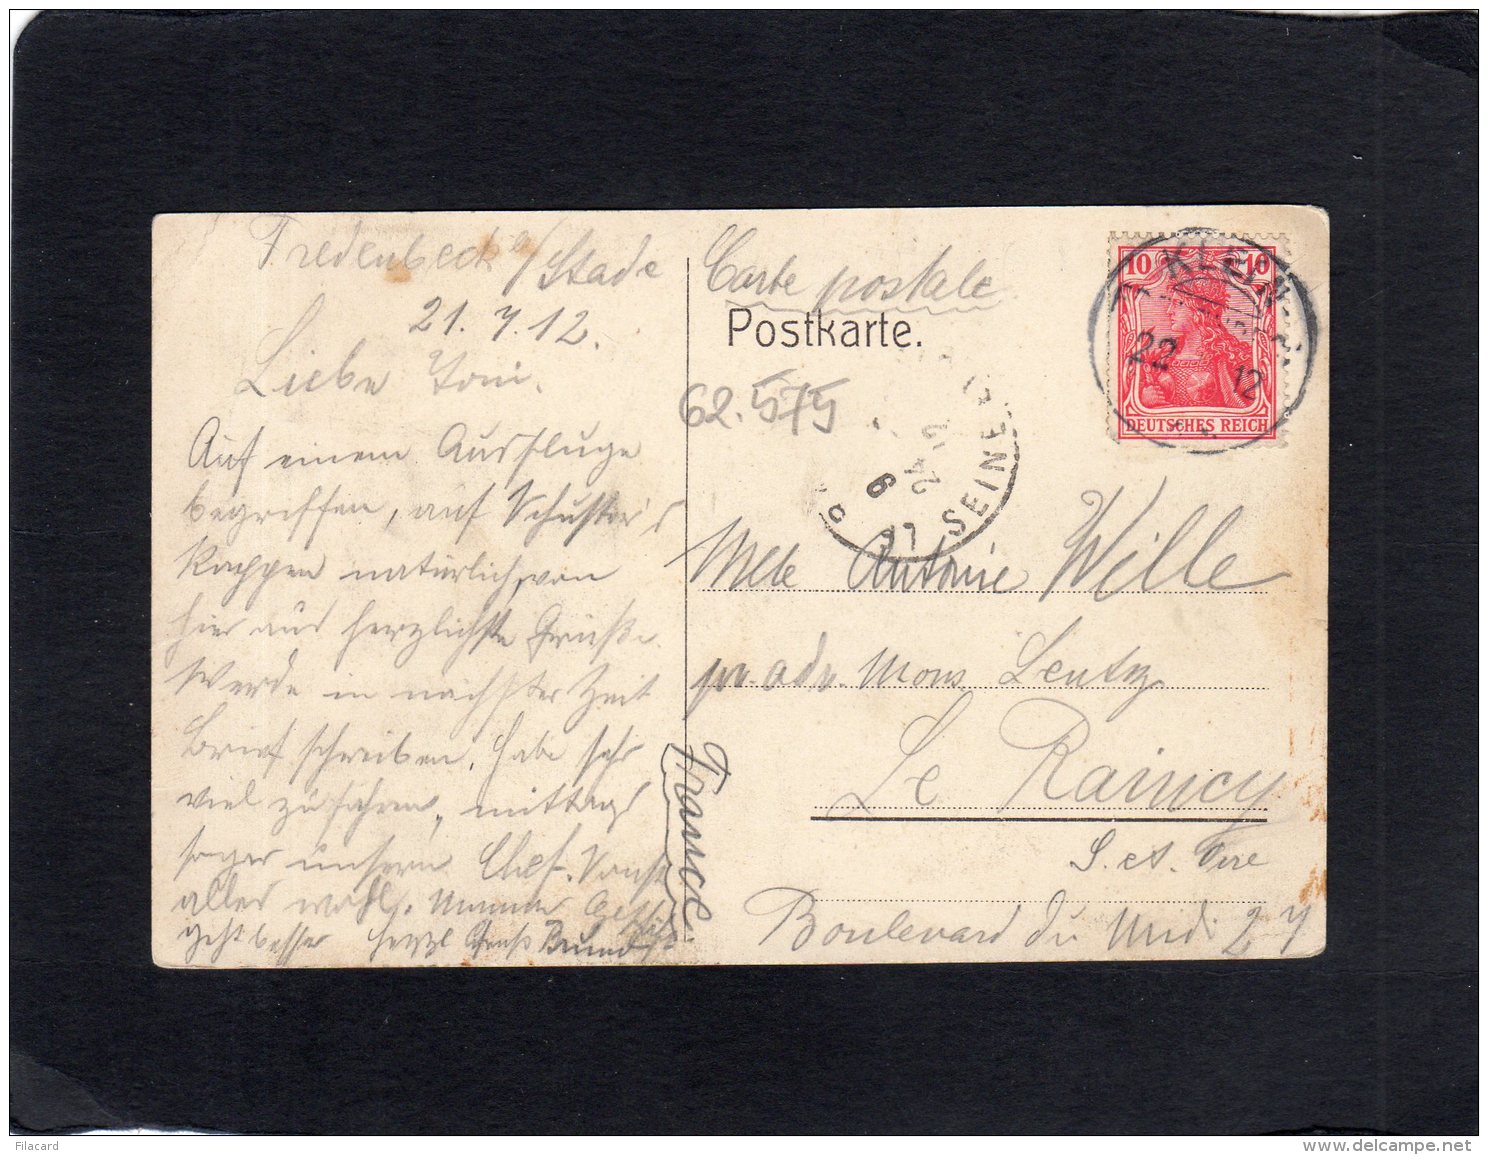 Fredenbeck b/Stade
21.7.12.
Liebe Toni.
Auf einem Ausfluge
begriffen, auf Schuster's
Rappen natürlich, von
hier aus herzlichste Grüße.
Werde in nächster Zeit
Brief schreiben. Habe sehr
viel zu fahren, mittags
sogar unsern Chef. Sonst
alles wohl. Mumme
geht besser herzl Gruß
Carte postale
Postkarte.
62.575
10 10
DEUTSCHES REICH
22 12
SEINE
Mlle Antonie Wille
pr. adr. Mons. Leutz
Le Raincy
S. et Oise
Boulevard du Midi 27
France
Filacard
www.delcampe.net